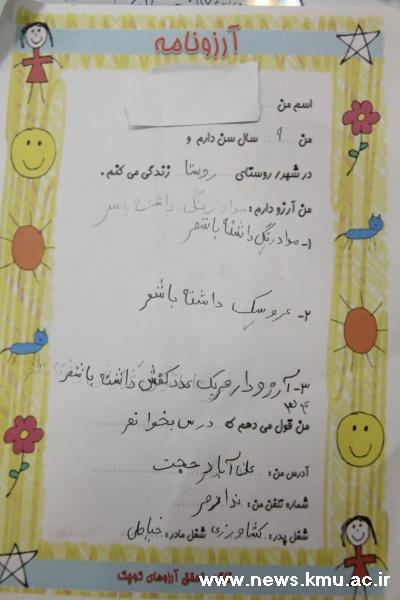 آرزونامه
اسم من
من ۹ سال سن دارم و
در شهر/ روستای روستا زندگی می کنم.
من آرزو دارم: مداد رنگی داشته باشم
۱- مداد رنگی داشته باشم
۲- عروسک داشته باشم
۳- آرزو دارم یک عدد کفش داشته باشم
من قول می دهم که درس بخوانم
آدرس من: علی آباد حجت
شماره تلفن من: ندارم
شغل پدر: کشاورزی شغل مادر: خیاطی
تحقق آرزوهای کوچک
www.news.kmu.ac.ir